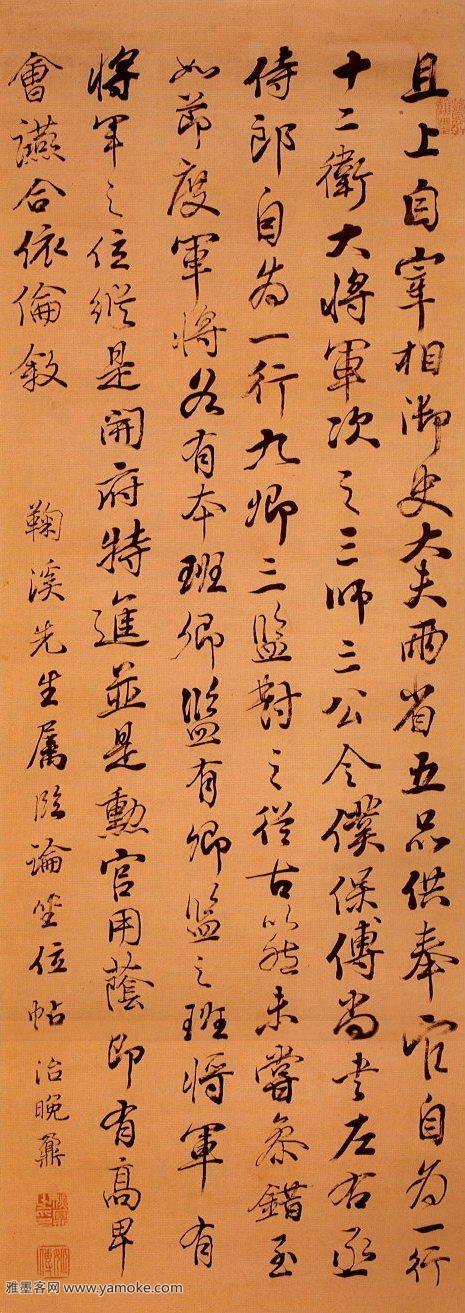 且上自宰相御史大夫兩省五品供奉官自为一行
十二衛大將軍次之三師三公令僕保傅尚书左右丞
侍郎自为一行九卿三監對之從古以然未嘗參錯至
如節度軍將各有本班卿監有卿監之班將軍有
將軍之位縱是開府特進並是勳官用蔭即有高卑
會讌合依倫敘
鞠溪先生屬臨論坐位帖 治晚鼐
雅墨客网 www.yamoke.com